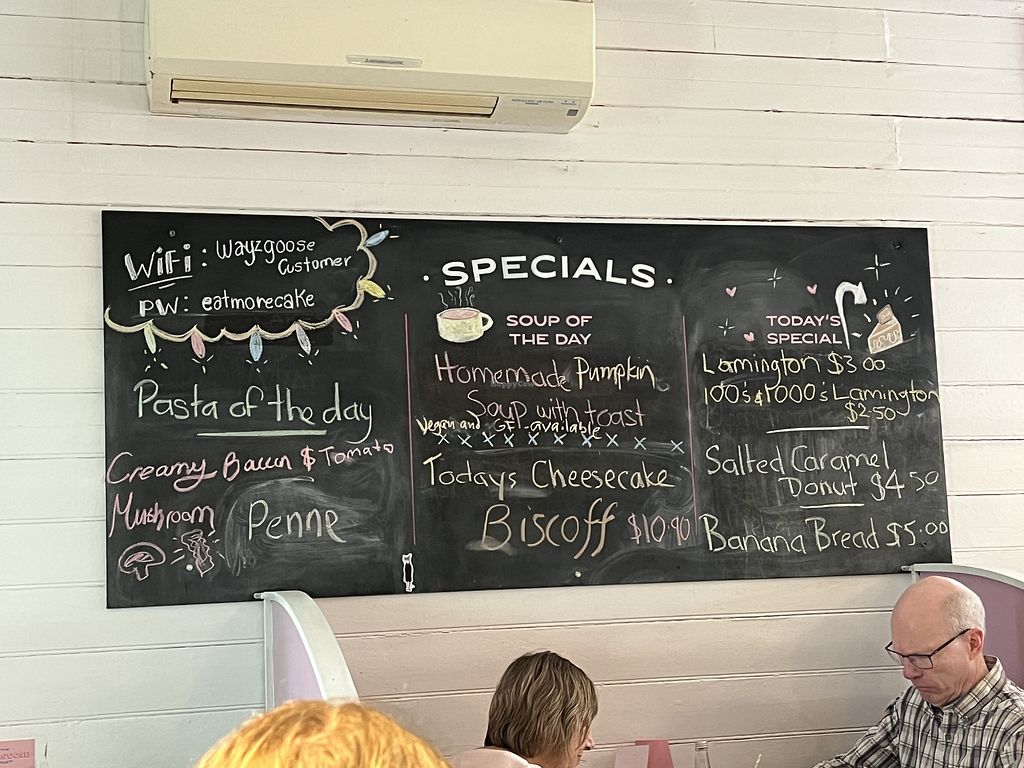 MITSUBISHI ELECTRIC
WiFi: Wayzgoose
Customer
PW: eatmorecake
Pasta of the day
Creamy Bacon & Tomato
Mushroom
Penne
· SPECIALS ·
SOUP OF
THE DAY
Homemade Pumpkin
Soup with toast
Vegan and GF-available
x x x x x x x x x x x x
Todays Cheesecake
Biscoff $10.90
TODAY'S
SPECIAL
Lamington $3.00
100's & 1000's Lamington
$2.50
Salted Caramel
Donut $4.50
Banana Bread $5.00
HappyCow